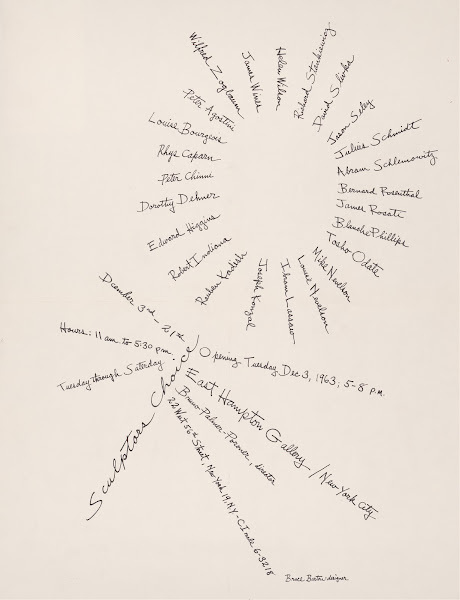 Wilfred Zogbaum
James Wines
Helen Wilson
Richard Stankiewicz
David Slivka
Jason Seley
Julius Schmidt
Abram Schlemowitz
Bernard Rosenthal
James Rosati
Blanche Phillips
Tosho Odate
Mike Nevelson
Louise Nevelson
Ibram Lassaw
Joseph Konzal
Reuben Kadish
Robert Indiana
Edward Higgins
Dorothy Dehner
Peter Chinni
Rhys Caparn
Louise Bourgeois
Peter Agostini
December 3rd - 21st
Hours: 11 am to 5:30 p.m.
Tuesday through Saturday
Sculptors Choice
Opening Tuesday, Dec 3, 1963; 5-8 p.m.
East Hampton Gallery / New York City
Bruno Palmer-Poroner, director
22 West 56th Street, New York 19, N.Y. - CIrcle 6-9218
Bruce designer